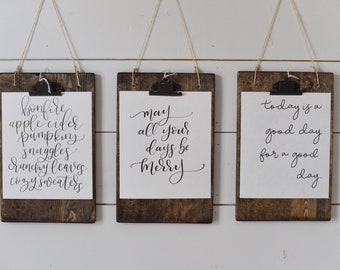 bonfire
apple cider
pumpkins
snuggles
crunchy leaves
cozy sweaters
may
all your
days be
merry
today is a
good day
for a good
day